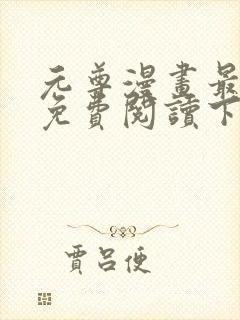 元尊漫畫最
免費閱讀下
賈呂便